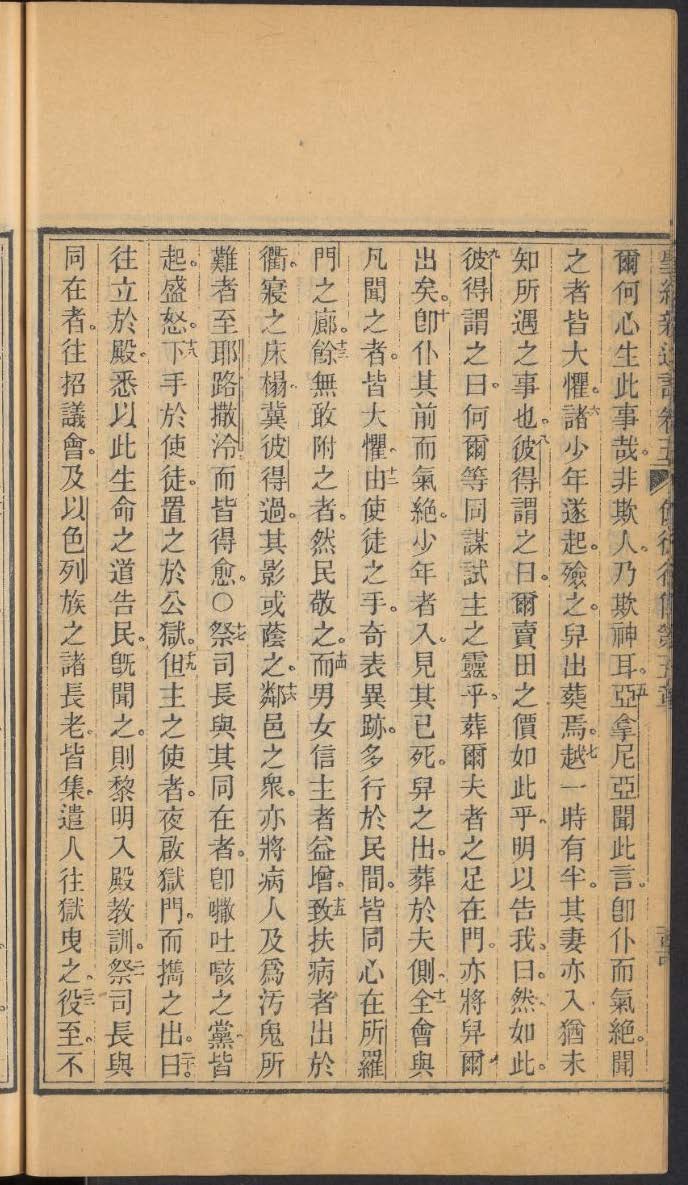 聖經新遺詔卷五 使徒行傳第五章
爾何心生此事哉。非欺人。乃欺神耳。五亞拿尼亞聞此言。卽仆而氣絕。聞
之者皆大懼。六諸少年遂起。殮之。舁出葬焉。七越一時有半。其妻亦入。猶未
知所遇之事也。八彼得謂之曰。爾賣田之價如此乎。明以告我。曰。然如此。
九彼得謂之曰。何爾等同謀試主之靈乎。葬爾夫者之足在門。亦將舁爾
出矣。十卽仆其前而氣絕。少年者入。見其已死。舁之出。葬於夫側。十一全會與
凡聞之者。皆大懼。十二由使徒之手。奇表異跡。多行於民間。皆同心在所羅
門之廊。十三餘無敢附之者。然民敬之。十四而男女信主者益增。十五致扶病者出於
衢。寢之床榻。冀彼得過。其影或蔭之。十六鄰邑之衆。亦將病人及爲汚鬼所
難者至耶路撒冷。而皆得愈。〇十七祭司長與其同在者。卽𠿕吐㗨之黨。皆
起。盛怒。十八下手於使徒。置之於公獄。十九但主之使者。夜啟獄門。而攜之出。曰。二十
往立於殿。悉以此生命之道告民。二一旣聞之。則黎明入殿教訓。祭司長與
同在者。往招議會。及以色列族之諸長老。皆集。遣人往獄曳之。二二役至。不